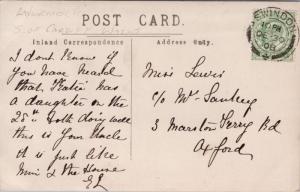 POST CARD.
Inland Correspondence
Address Only.
SWINDON
08
I don't know if
you have heard
that, Katie has
a daughter on the
25th both doing well
this is your Uncle
it is just like
him & the House
Miss Lewis
c/o Mr Sankey
3 Marston Ferry Rd
Oxford